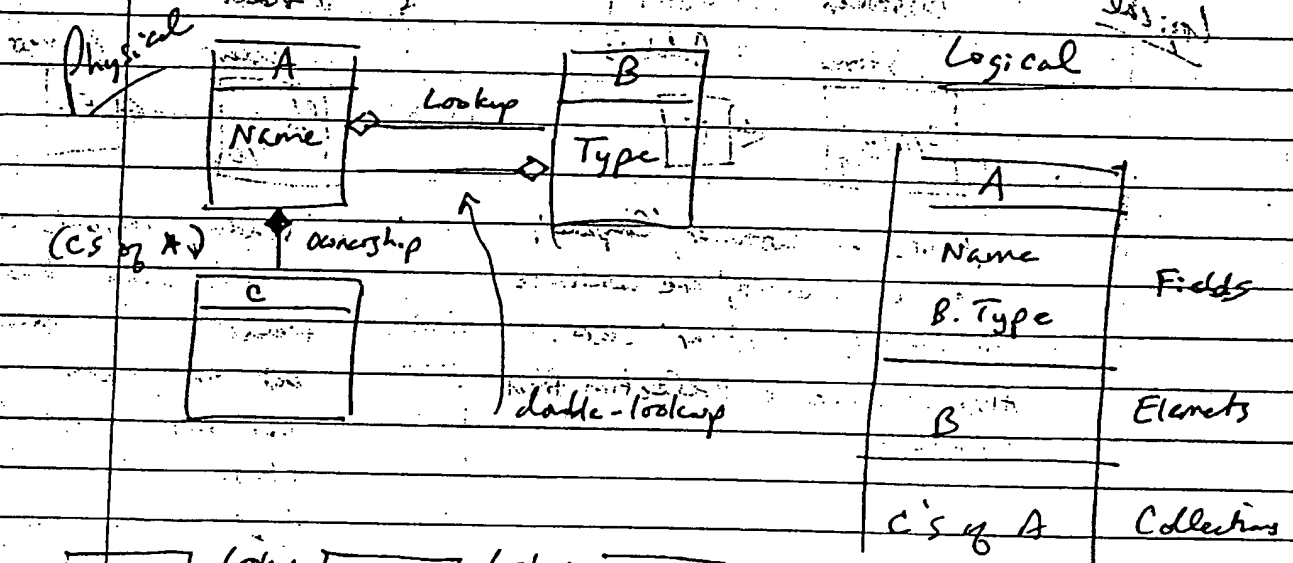 Physical
A
Name
Lookup
B
Type
(C's of A)
ownership
C
double-lookup
Logical
A
Name
B. Type
Fields
B
Elemets
C's of A
Collections